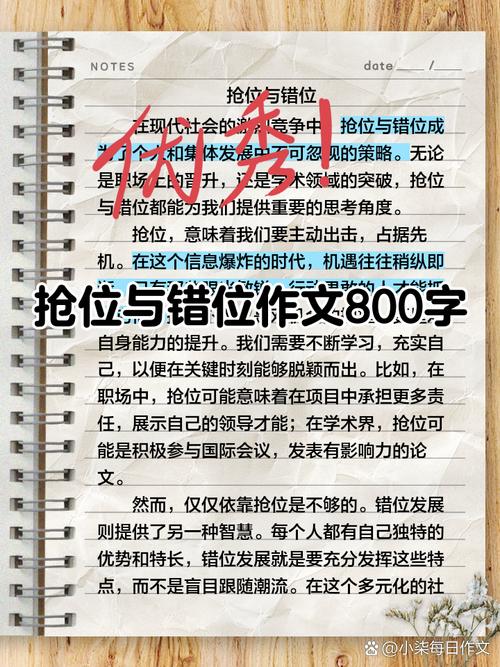 NOTES
date ___ / ___
抢位与错位
在现代社会的激烈竞争中，抢位与错位成
为了个人和集体发展中不可忽视的策略。无论
是职场上的晋升，还是学术领域的突破，抢位
与错位都能为我们提供重要的思考角度。
优秀！
抢位，意味着我们要主动出击，占据先
机。在这个信息爆炸的时代，机遇往往稍纵即
抢位与错位作文800字
自身能力的提升。我们需要不断学习，充实自
己，以便在关键时刻能够脱颖而出。比如，在
职场中，抢位可能意味着在项目中承担更多责
任，展示自己的领导才能；在学术界，抢位可
能是积极参与国际会议，发表有影响力的论
文。
然而，仅仅依靠抢位是不够的。错位发展
则提供了另一种智慧。每个人都有自己独特的
优势和特长，错位发展就是要充分发挥这些特
点，而不是盲目跟随潮流。在这个多元化的社
小柒每日作文